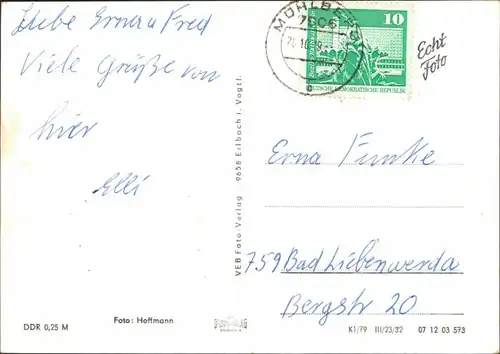 Liebe Erna u Fred
Viele Grüße von
hier
Elli
MÜHLBERG
7906
10
DEUTSCHE DEMOKRATISCHE REPUBLIK
Echt
Foto
Erna Funke
759 Bad Liebenwerda
Bergstr 20
VEB Foto-Verlag 9658 Erlbach i. Vogtl.
DDR 0,25 M
Foto: Hoffmann
K1/79 III/23/32 07 12 03 573